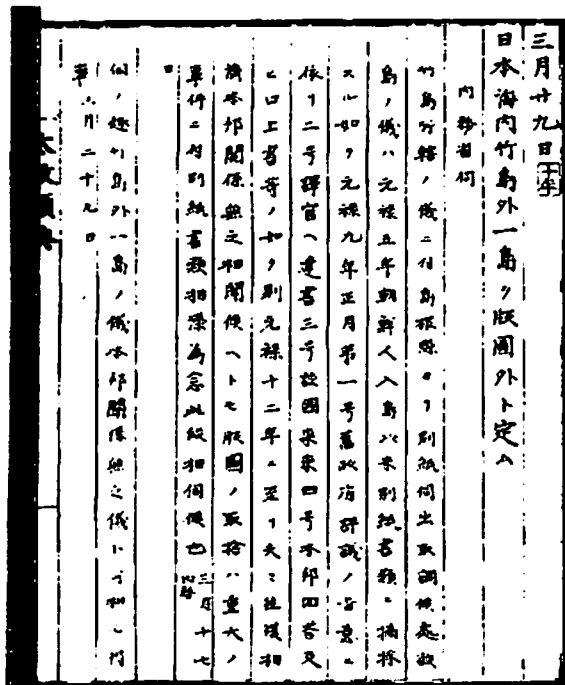 三月廿九日 十年
日本海内竹島外一島ヲ版圖外ト定ム
内務省伺
竹島所轄ノ儀ニ付島根縣ヨリ別紙伺出取調候處該
島ノ儀ハ元禄五年朝鮮人入島以来別紙書類ニ摘採
スル如ク元禄九年正月第一号舊政府評議ノ旨意ニ
依リ二号譯官ヘ達書三号該國来柬四号本邦回答及
ヒ口上書等ノ如ク則元禄十二年ニ至リ夫々往復相
濟本邦関係無之相聞候ヘトモ版圖ノ取捨ハ重大ノ
事件ニ付別紙書類相添為念此段相伺候也 三月十七 内務
日
伺ノ趣竹島外一島ノ儀本邦関係無之儀ト可相心得
事 三月二十九日